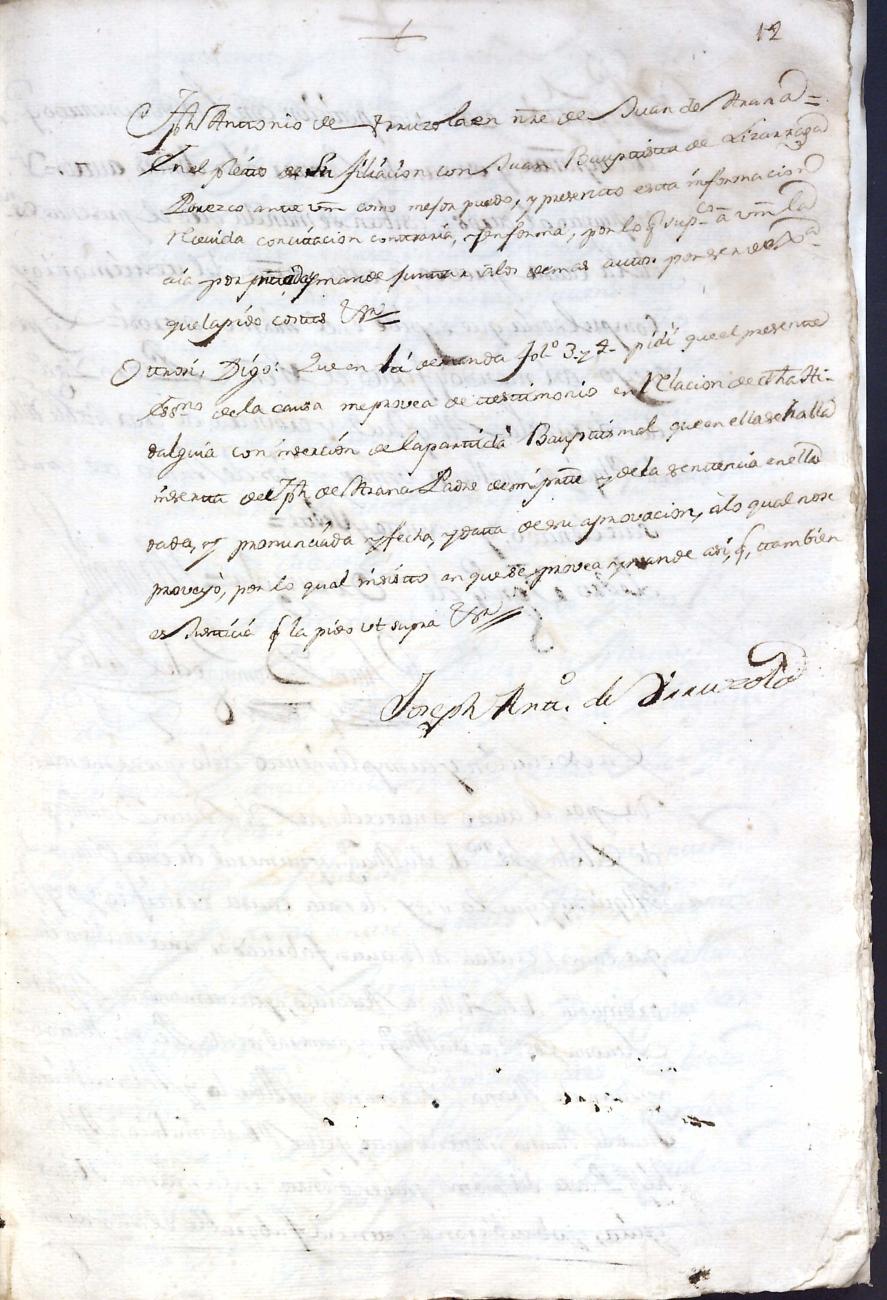 12
Jph Anttonio de Yrruzola en nre de Juan de Arana =
En el pleito de su filiacion con Juan Bauptista de Lizarraga
Parezco ante vm como mejor puedo, y presento esta informacion
recivida con citacion contraria, y en forma, por lo q supco a vm la
aia por presentada y mande juntar a los demas autos por ser de Jua
que la pido costas &a
Ottrosi, Digo: Que en la demanda folo 3. y 4. pidi que el presente
Essno de la causa me provea de testimonio en relacion de dha Hi-
dalguia con insercion de la partida Bauptismal que en ella se halla
inserta del Jph de Arana Padre de mi parte y de la sentencia en ella
dada, y pronunciada y fecha, y data de su aprovacion, a lo qual no se
proveyò, por lo qual insisto en que se provea y mande asi, q, ttambien
es Justicia q la pido ut supra &a
Joseph Anto. de Yrruzola